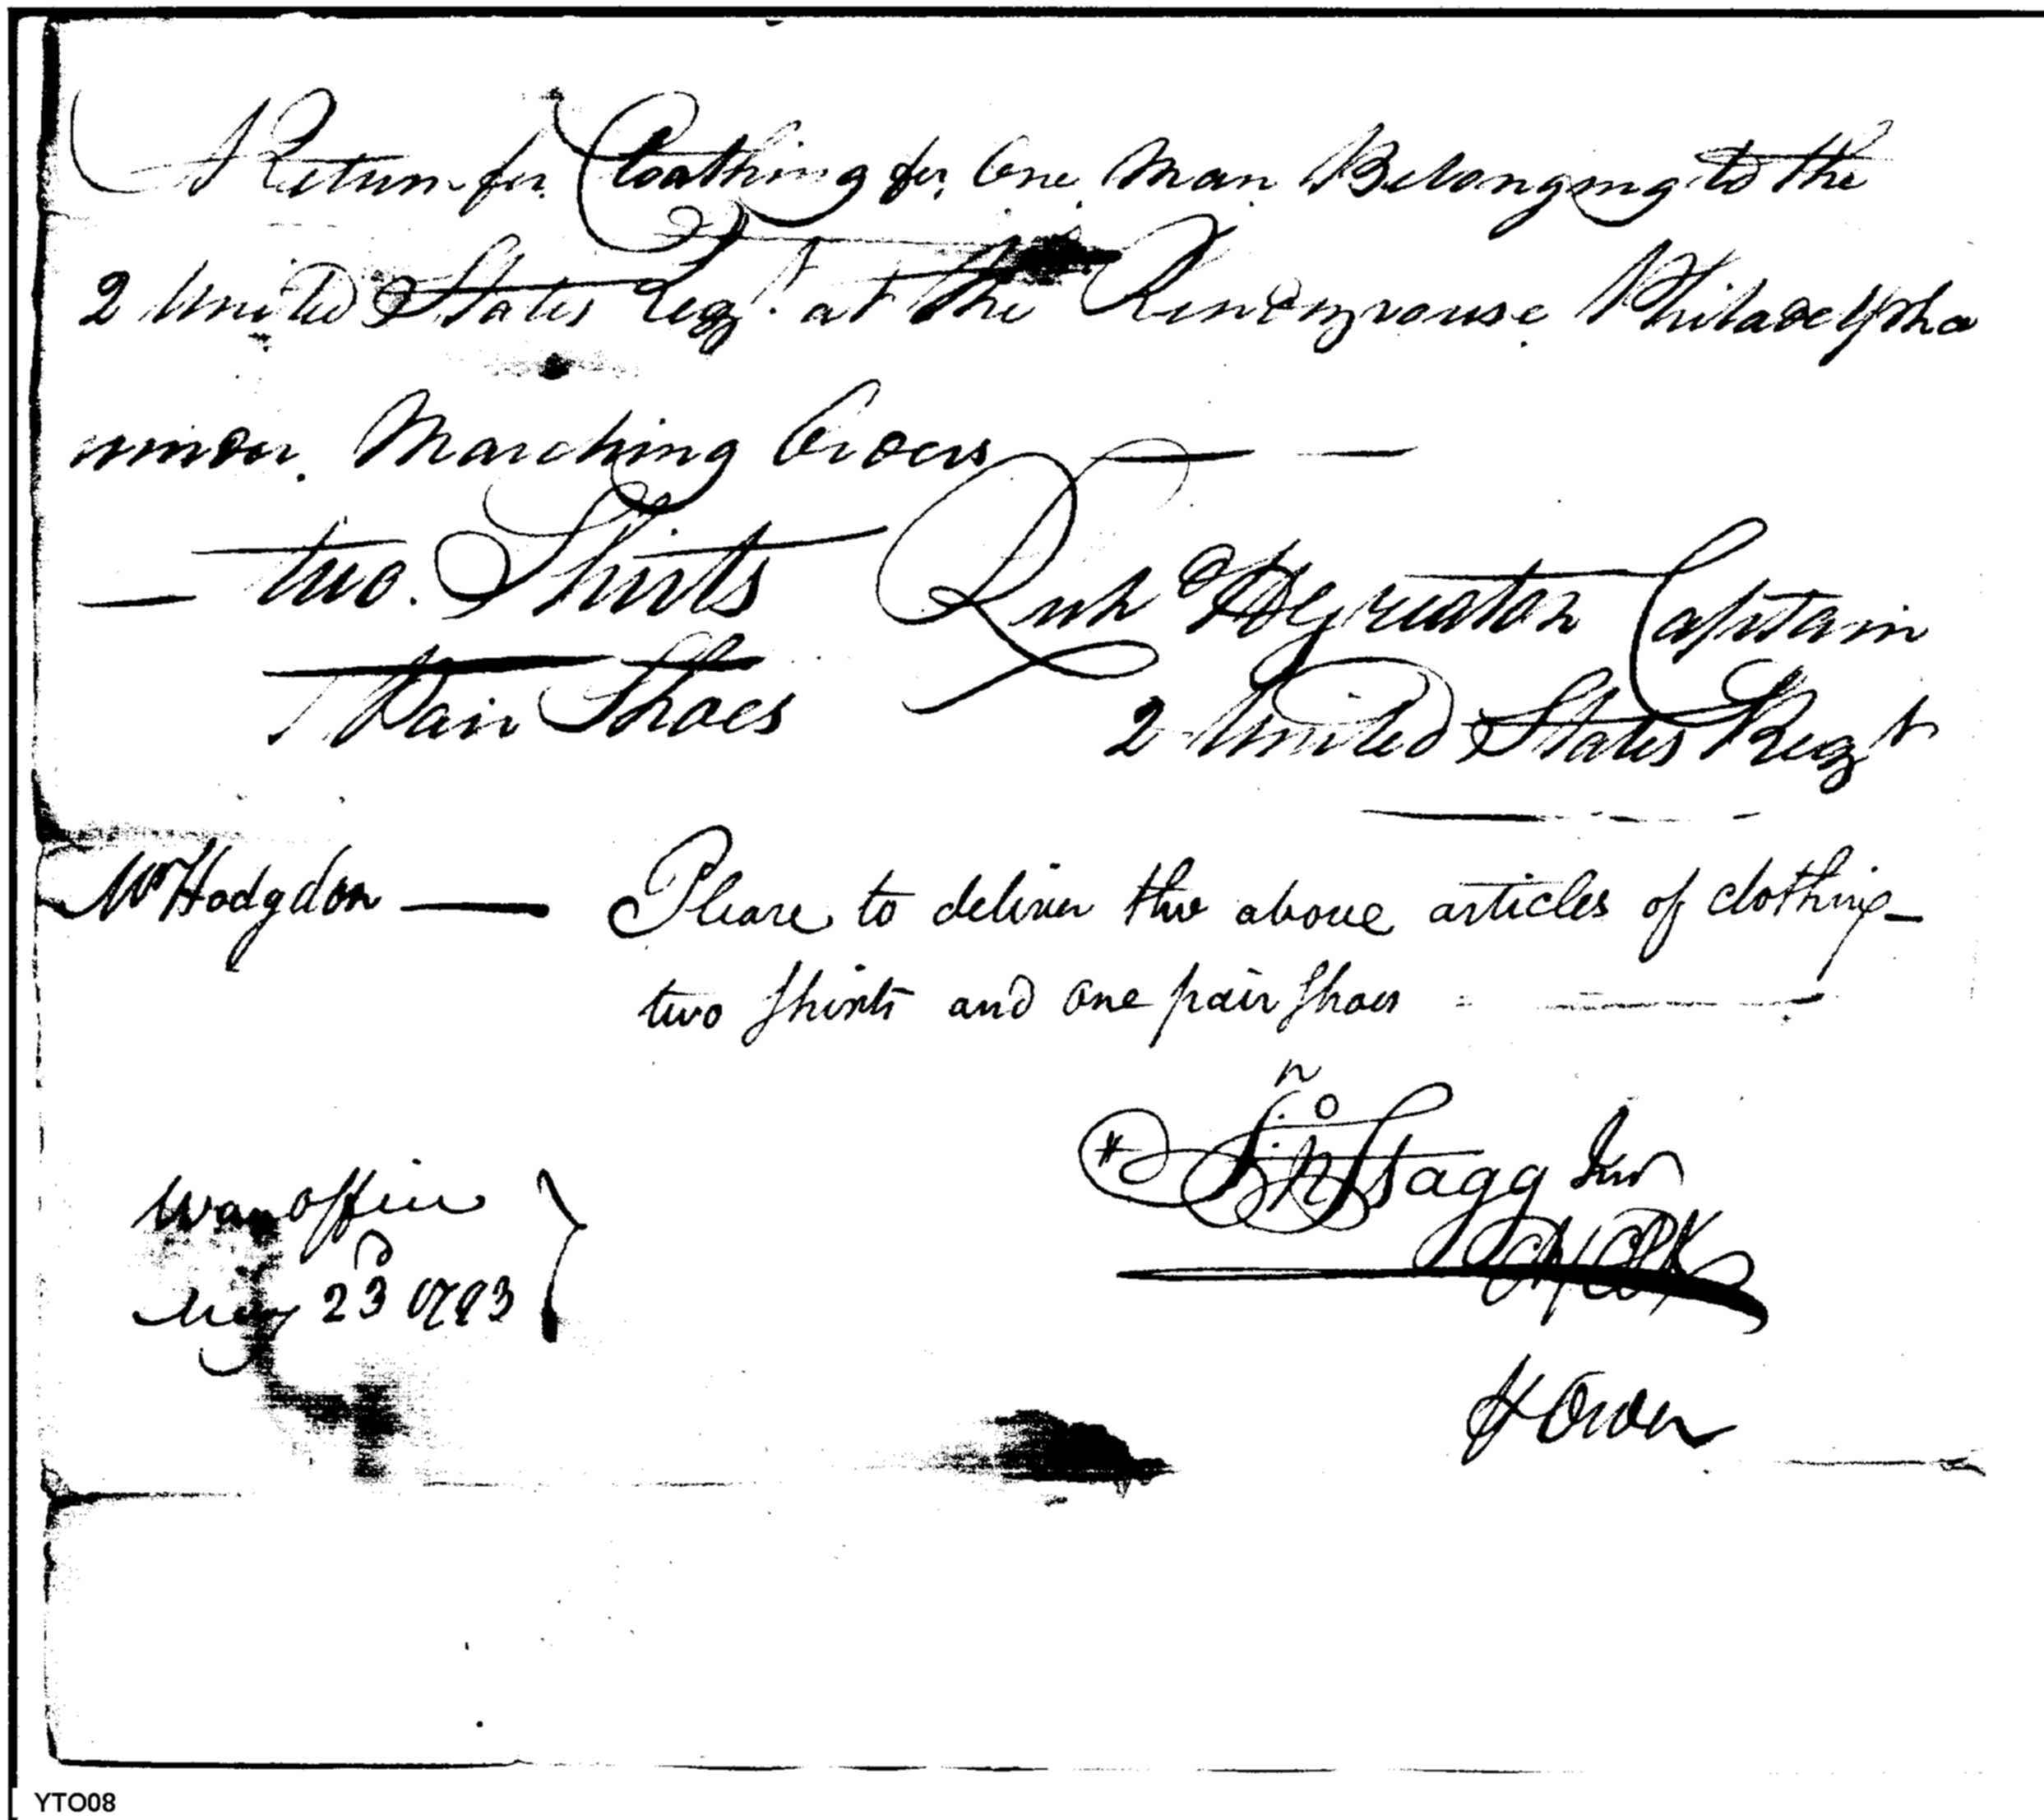 A Return for Cloathing for One Man Belonging to the
2 United States Regt. at the Rendezvouse Philadelpha
under Marching Orders
two Shirts Rich H Greaton Captain
1 Pair Shoes 2 United States Regt
Mr Hodgdon Please to deliver the above articles of clothing
two shirts and one pair shoes
Jno Stagg Junr
War office
May 23d 1793
Order
YTO08